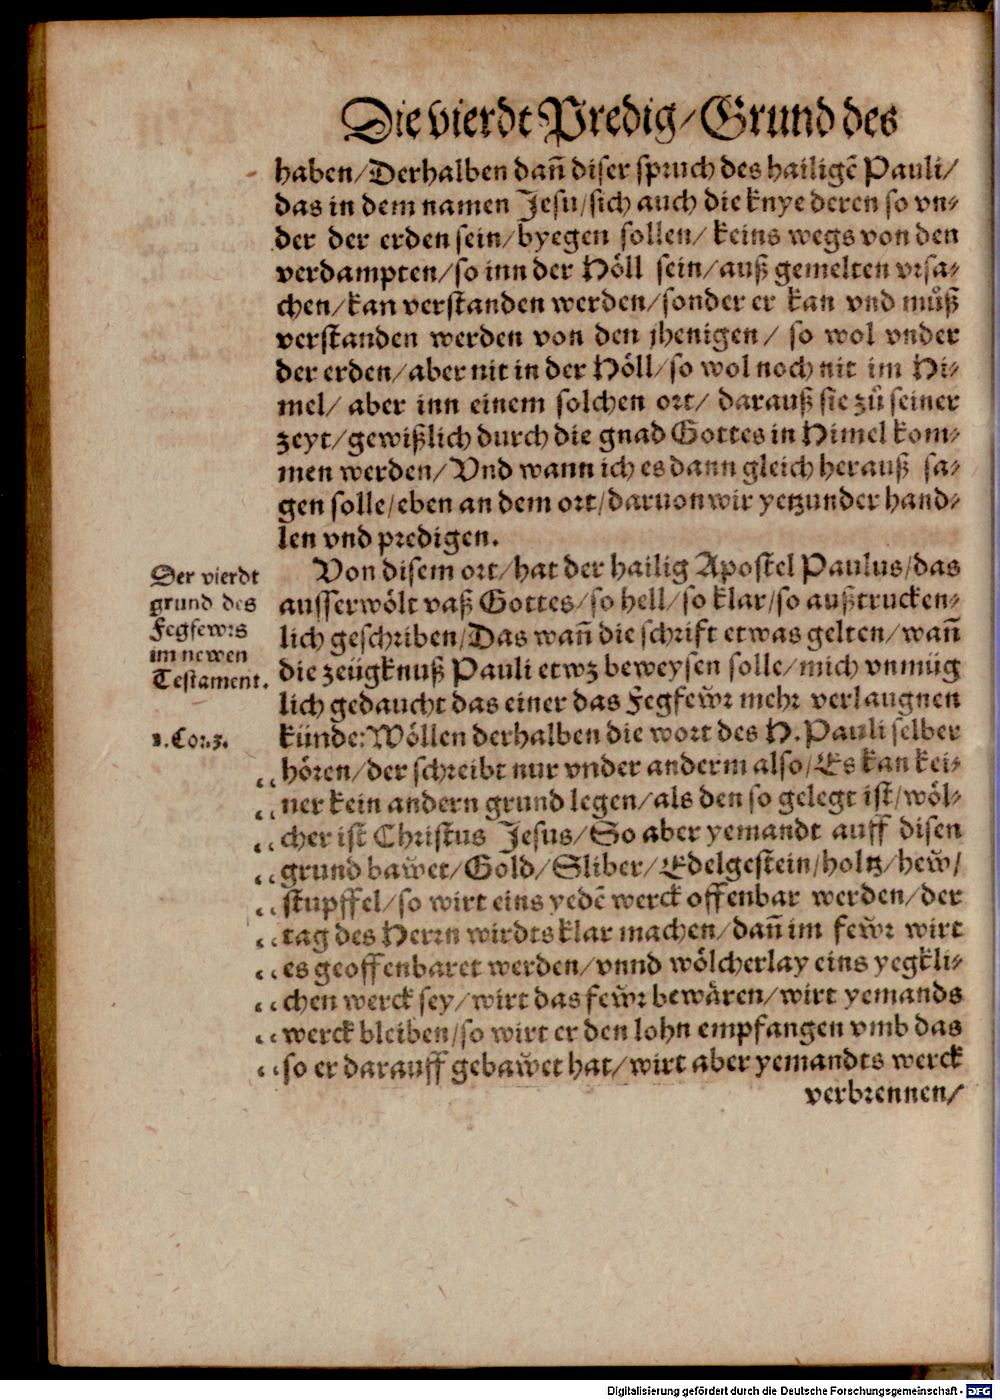 Die vierdt Predig/ Grund des
haben/ Derhalben dañ diser spruch des hailigẽ Pauli/
das in dem namen Jesu/ sich auch die knye deren so vn⸗
der der erden sein/ byegen sollen/ keins wegs von den
verdampten/ so inn der Höll sein/ auß gemelten vrsa⸗
chen/ kan verstanden werden/ sonder er kan vnd můß
verstanden werden von den jhenigen/ so wol vnder
der erden/ aber nit in der Höll/ so wol noch nit im Hi⸗
mel/ aber inn einem solchen ort/ darauß sie zů seiner
zeyt/ gewißlich durch die gnad Gottes in Himel kom⸗
men werden/ Vnd wann ich es dann gleich herauß sa⸗
gen solle/ eben an dem ort/ daruon wir yetzunder hand⸗
len vnd predigen.
Der vierdt
grund des
Fegfewrs
im newen
Testament.
1. Cor. 3.
Von disem ort/ hat der hailig Apostel Paulus/ das
ausserwölt vaß Gottes/ so hell/ so klar/ so außtrucken⸗
lich geschriben/ Das wañ die schrift etwas gelten/ wañ
die zeügknuß Pauli etwz beweysen solle/ mich vnmüg
lich gedaucht das einer das Fegfew̃r mehr verlaugnen
künde: Wöllen derhalben die wort des H. Pauli selber
hören/ der schreibt nur vnder anderm also/ Es kan kei⸗
ner kein andern grund legen/ als den so gelegt ist/ wöl⸗
cher ist Christus Jesus/ So aber yemandt auff disen
grund baw̃et/ Gold/ Sliber/ Edelgestein/ holtz/ hew̃/
stupffel/ so wirt eins yedẽ werck offenbar werden/ der
tag des Herrn wirdts klar machen/ dañ im few̃r wirt
es geoffenbaret werden/ vnnd wölcherlay eins yegkli⸗
chen werck sey/ wirt das few̃r bewären/ wirt yemands
werck bleiben/ so wirt er den lohn empfangen vmb das
so er darauff gebaw̃et hat/ wirt aber yemandts werck
verbrennen/
Digitalisierung gefördert durch die Deutsche Forschungsgemeinschaft - DFG